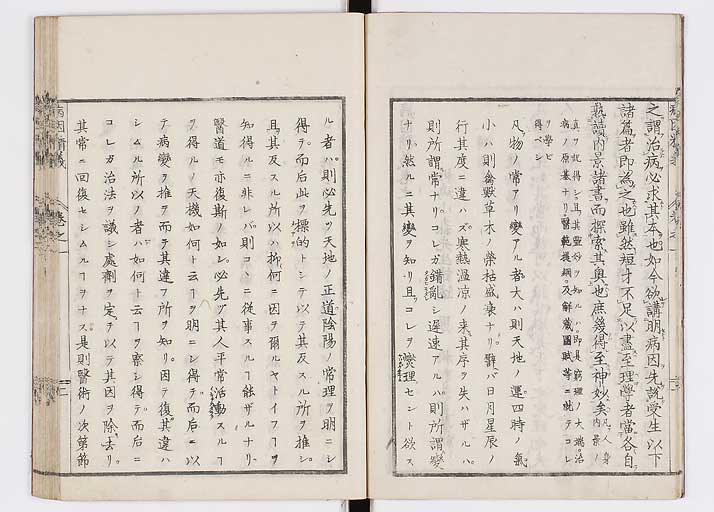 之謂治病必求其本也如今欲講明病因先說受生以下
諸篇者即為之也雖然短才不足以盡至理學者當各自
熟讀内景諸書而探索其奥也庶幾得至神妙矣凡人身内景ノ
真ヲ認得シ且其靈妙ヲ知ルハ即是窮理ノ大端治
病ノ原基ナリ醫範提綱及解藏圖賦等ニ就テコレ
ヲ學ビ
得ベシ
凡物ノ常アリ變アル者大ハ則天地ノ運四時ノ氣
小ハ則禽獸草木ノ榮枯盛衰ナリ譬バ日月星辰ノ
行其度ニ違ハズ寒熱温凉ノ來其序ヲ失ハザルハ
則所謂常ナリコレガ錯亂シ遲速アルハ則所謂變
ナリ然ルニ其變ヲ知リ且コレヲ燮理セント欲ス
ル者ハ則必先ヅ天地ノ正道陰陽ノ常理ヲ明ニシ
得テ而后此ヲ標的トシテ以テ其反スル所ヲ推シ
且其及スル所以ハ抑何ニ因ヲ爾ルヤトイフヿヲ
知得ルニ非レバ則コヽニ從事スルヿ能ザルナリ
醫道モ亦復斯ノ如シ必先ヅ其人平常活動スルヿ
ヲ得ルノ天機如何ト云ヿヲ明ニシ得テ而后ニ以
テ病變ヲ推ヲ而テ其違フ所ヲ知リ因テ復其違ハ
シムル所以ノ者ハ如何ト云ヿヲ察シ得テ而后ニ
コレガ治法ヲ議シ處劑ヲ定テ以テ其因ヲ除去リ
其常ニ回復セシムルヿヲナス是則醫術ノ次第節
病因精義 卷之一